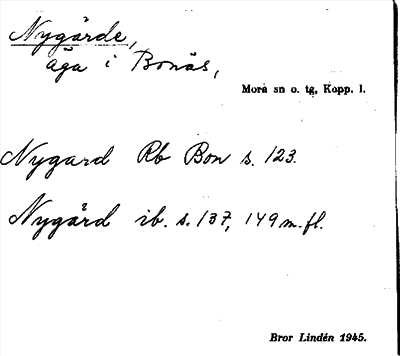 Nygärde,
äga i Bonäs,
Mora sn o. tg, Kopp. l.
Nygard Rb Bon s. 123.
Nygård ib. s. 137, 149 m. fl.
Bror Lindén 1945.